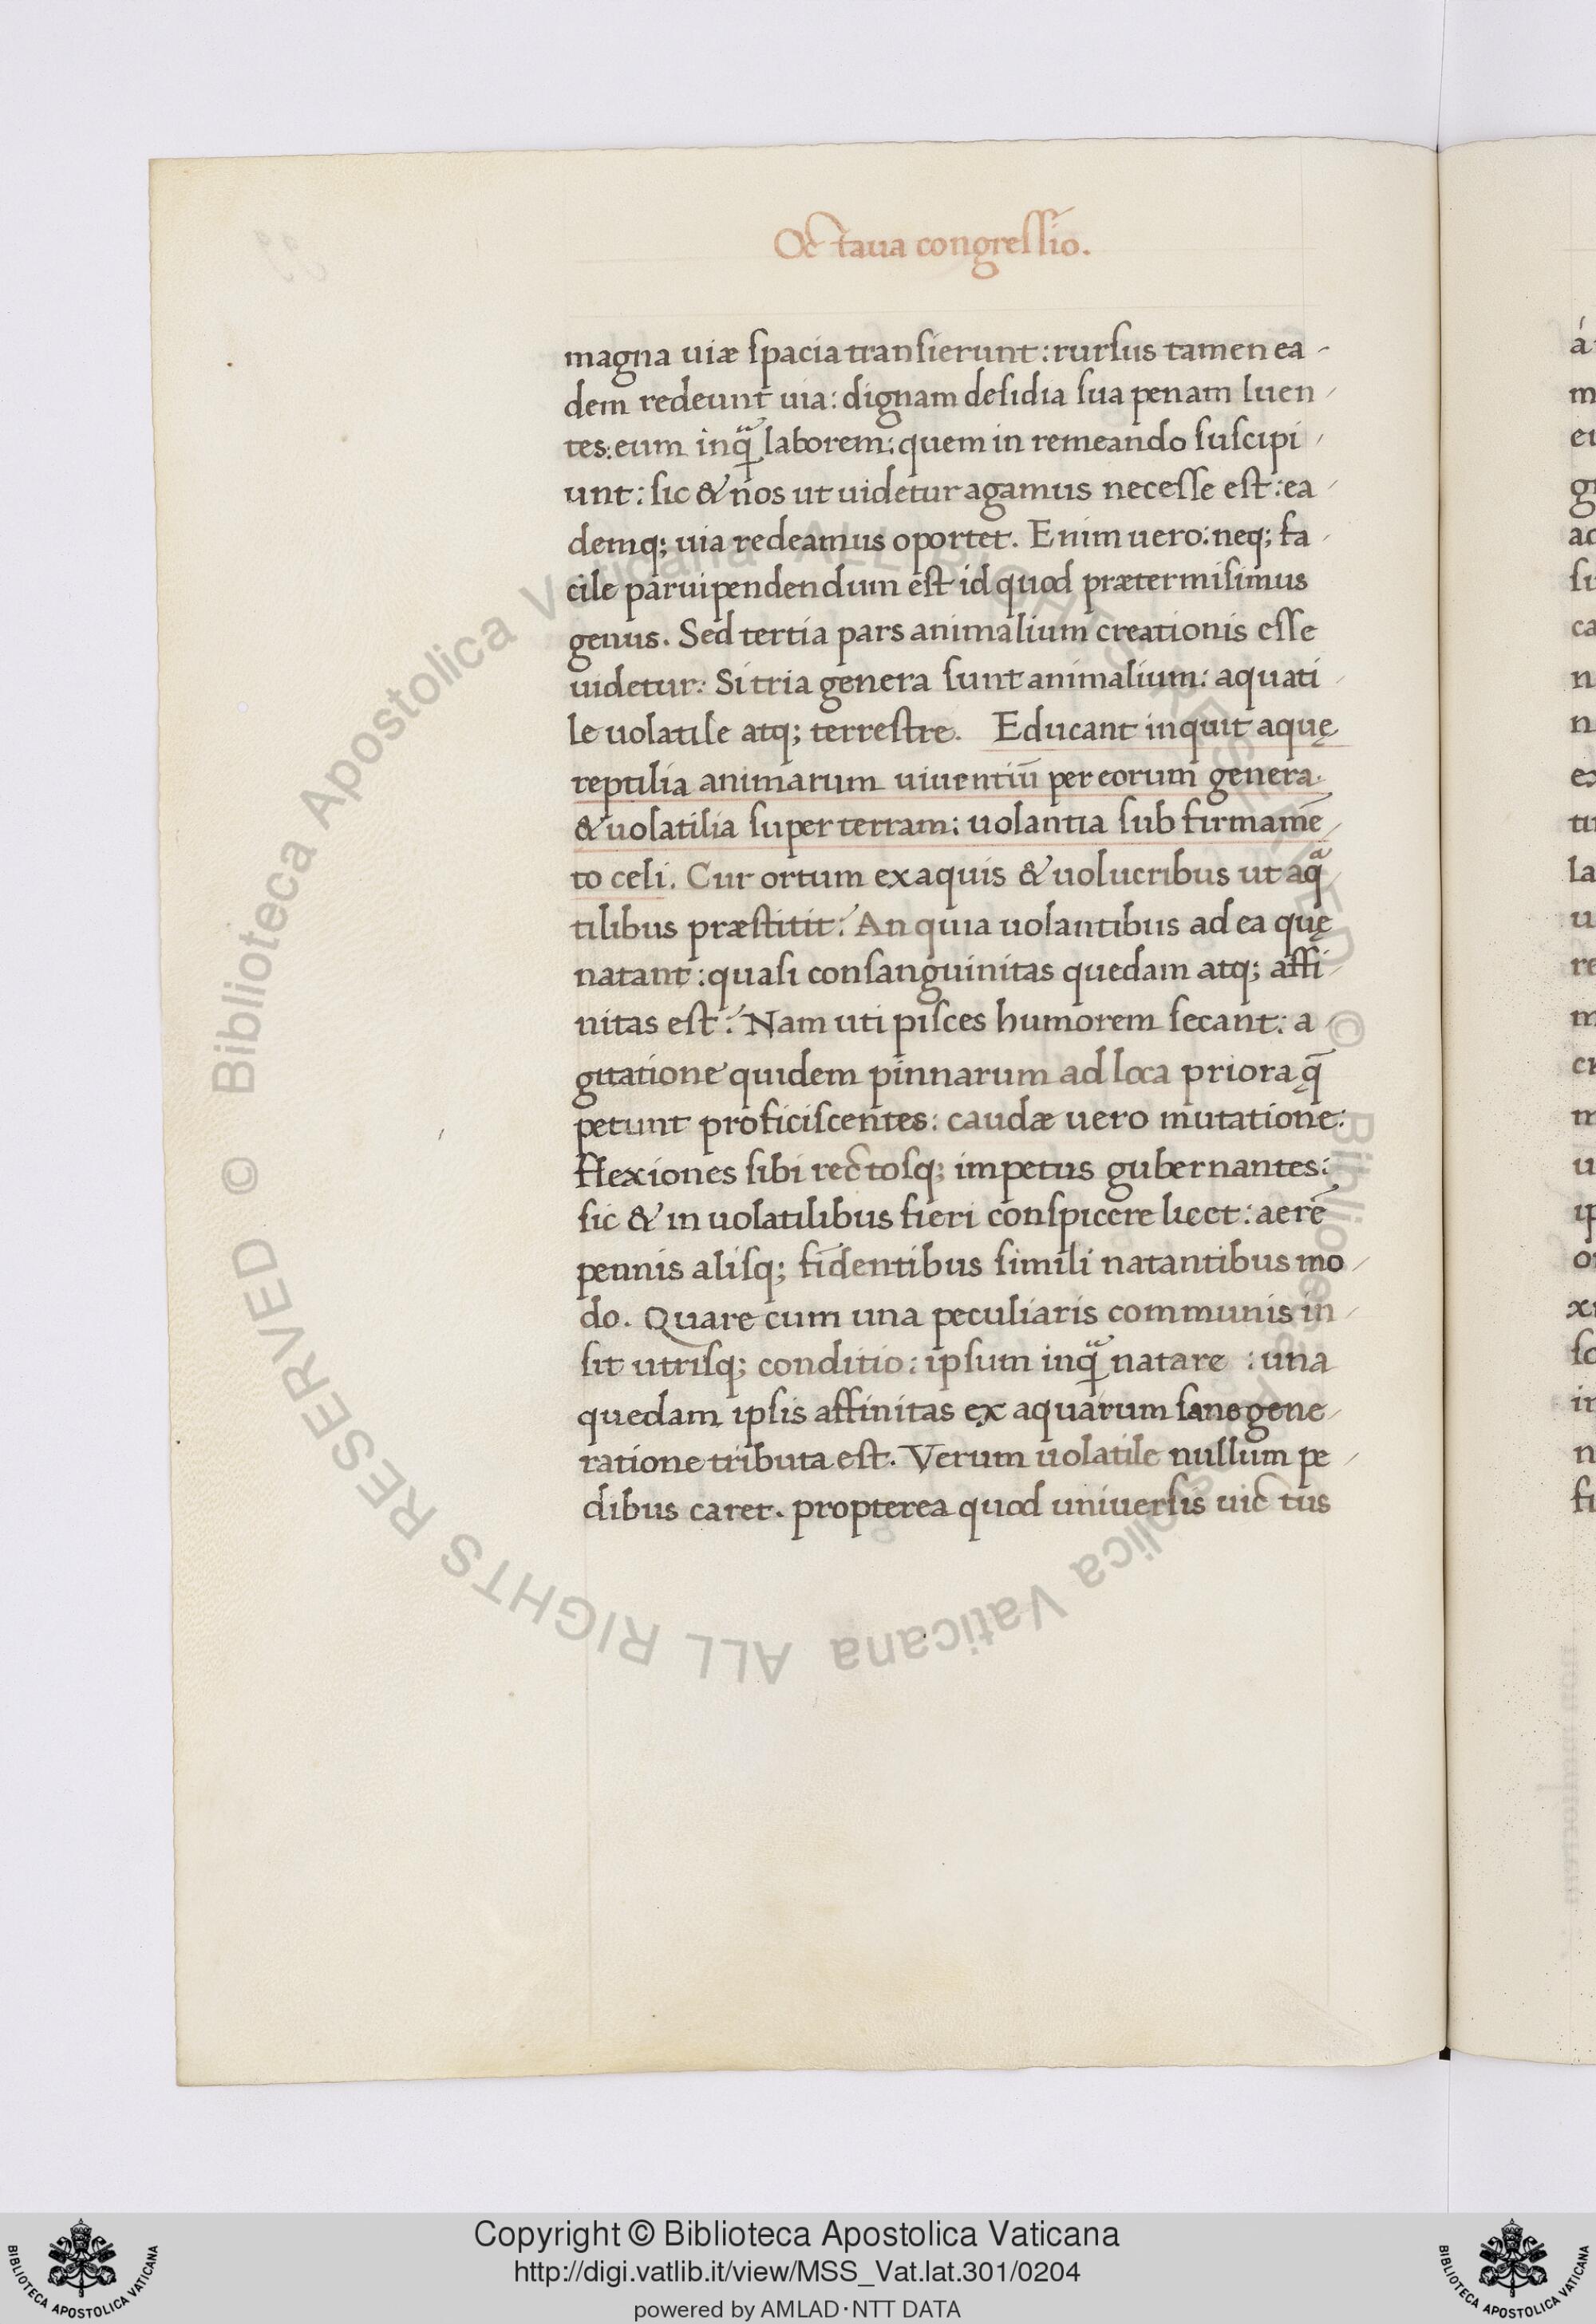 Octaua congressio.
magna uiæ spacia transierunt: rursus tamen ea-
dem redeunt uia: dignam desidia sua penam luen-
tes: eum inqᷓ laborem: quem in remeando suscipi-
unt: sic & nos ut uidetur agamus necesse est: ea-
demq; uia redeamus oportet. Enim uero: neq; fa-
cile paruipendendum est id quod prætermisimus
genus. Sed tertia pars animalium creationis esse
uidetur: Si tria genera sunt animalium: aquati-
le uolatile atq; terrestre. Educant inquit aquę
reptilia animarum uiuentiū per eorum genera.
& uolatilia super terram: uolantia sub firmamē-
to celi. Cur ortum ex aquis & uolucribus ut aqᷓ
tilibus præstitit? An quia uolantibus ad ea quę
natant: quasi consanguinitas quedam atq; affi-
nitas est? Nam uti pisces humorem secant: a-
gitatione quidem pinnarum ad loca priora q̄
petunt proficiscentes: caudæ uero mutatione:
flexiones sibi rectosq; impetus gubernantes:
sic & in uolatilibus fieri conspicere licet: aerē
pennis alisq; findentibus simili natantibus mo-
do. Quare cum una peculiaris communis in-
sit utrisq; conditio: ipsum inqᷓ natare : una
quedam ipsis affinitas ex aquarum sane gene-
ratione tributa est. Verum uolatile nullum pe-
dibus caret. propterea quod uniuersis uictus
© Biblioteca Apostolica Vaticana ALL RIGHTS RESERVED
© Biblioteca Apostolica Vaticana ALL RIGHTS RESERVED
Copyright © Biblioteca Apostolica Vaticana
http://digi.vatlib.it/view/MSS_Vat.lat.301/0204
powered by AMLAD·NTT DATA
BIBLIOTECA APOSTOLICA VATICANA
BIBLIOTECA APOSTOLICA VATICANA